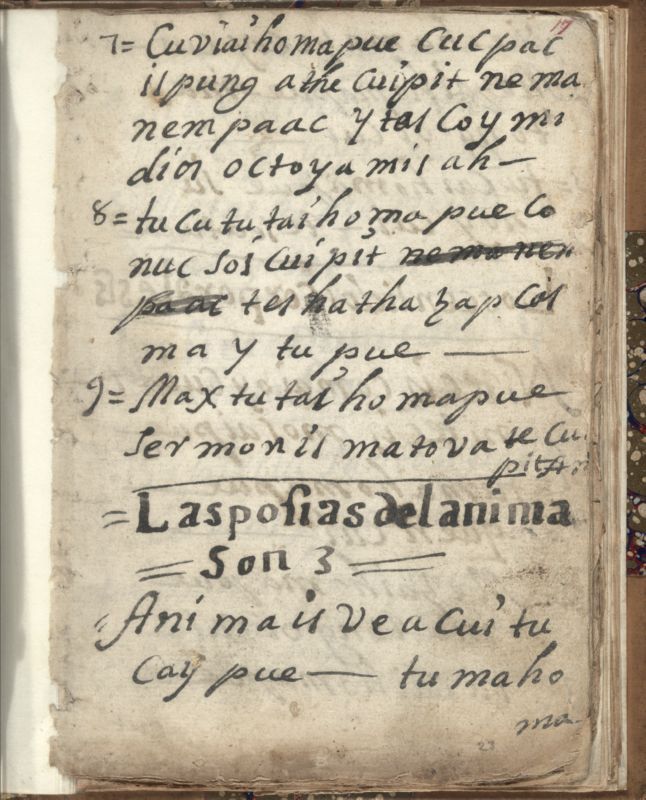 17
7= Cuviaihomapue cucpac
is pung athe cuipit nema
nempaac y tes Coy mi
dios octoyamis ah—
8= tucututaihoma pue Co
nuc Soi cuipit nema nen
paac tes hatha
ma y tu pue —
9= Max tutaihomapue
Sermonis matova te Cu
pit
=Las posias del anima
= Son 3 =
Animais ve a cui tu
Cay pue — tumaho
ma
23